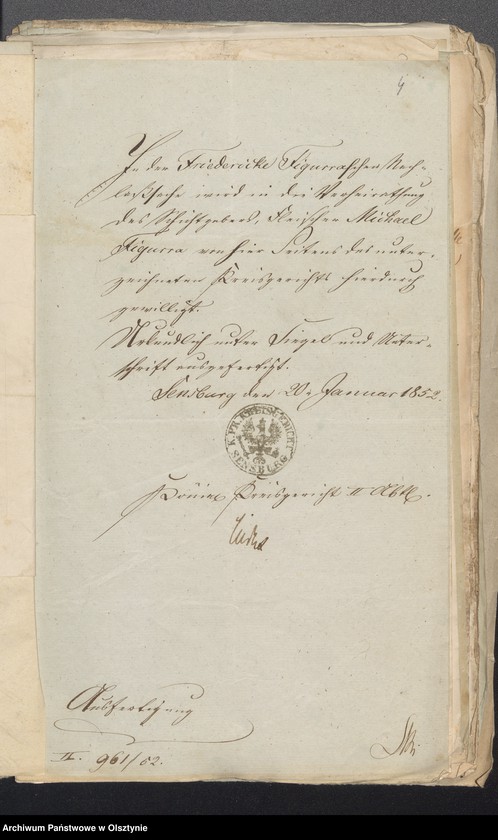 4
In der Friedericke Figurraschen Nach-
laßsache wird in die Verheirathung
des Schichtgebers, Fleischer Michael
Figurra von hier Seitens des unter-
zeichneten Kreisgerichts hierdurch
gewilligt.
Urkundlich unter Siegel und Unter-
schrift ausgefertigt.
Sensburg den 20. Januar 1852.
K. PR. KREISGERICHT
SENSBURG
Königl Kreisgericht II Abth.
Ausfertigung
II. 961/52.
Archiwum Państwowe w Olsztynie